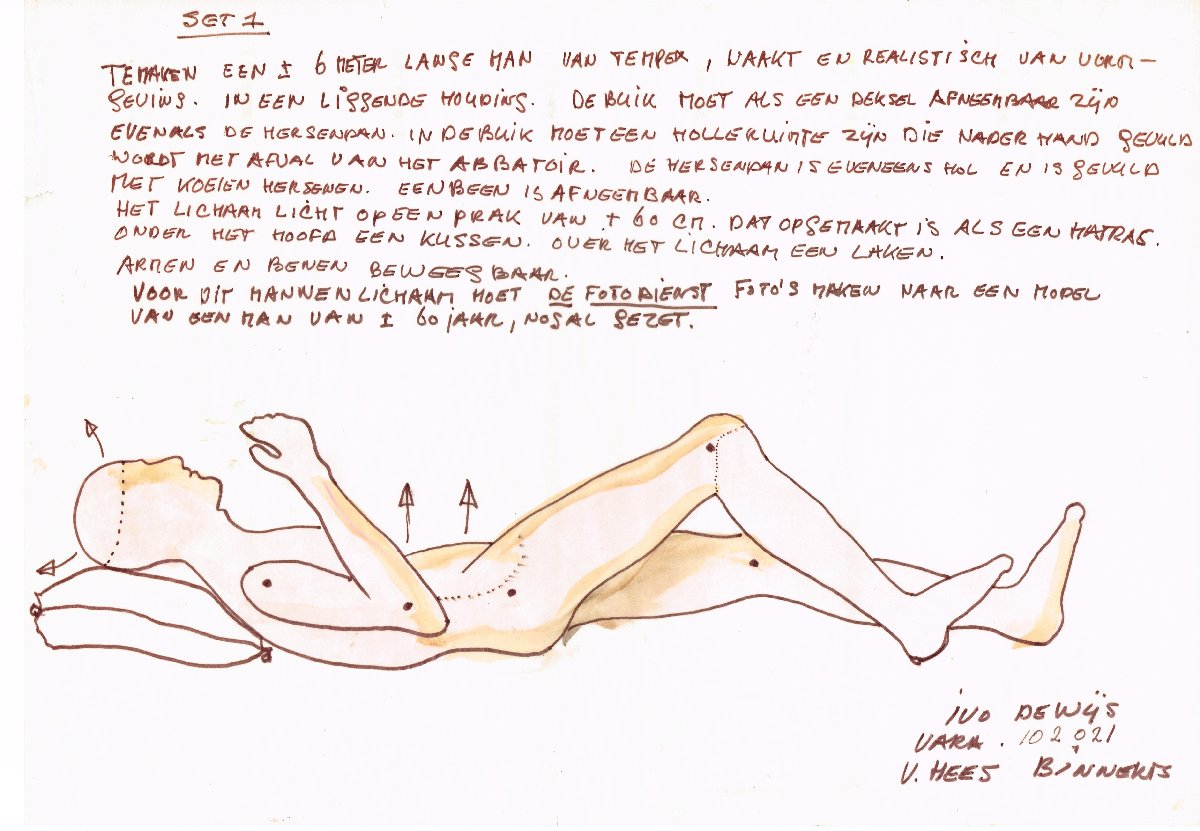 SET 1
TE MAKEN EEN ± 6 METER LANGE MAN VAN TEMPEX, NAAKT EN REALISTISCH VAN VORM-
GEVING. IN EEN LIGGENDE HOUDING. DE BUIK MOET ALS EEN DEKSEL AFNEEMBAAR ZIJN
EVENALS DE HERSENPAN. IN DE BUIK MOET EEN HOLLE RUIMTE ZIJN DIE NADER HAND GEVULD
WORDT MET AFVAL VAN HET ABBATOIR. DE HERSENPAN IS EVENEENS HOL EN IS GEVULD
MET KOEIEN HERSENEN. EEN BEEN IS AFNEEMBAAR.
HET LICHAAM LICHT OP EEN PRAK VAN ± 60 CM. DAT OPGEMAAKT IS ALS EEN MATRAS.
ONDER HET HOOFD EEN KUSSEN. OVER HET LICHAAM EEN LAKEN.
ARMEN EN BENEN BEWEEGBAAR.
VOOR DIT MANNENLICHAAM MOET DE FOTODIENST FOTO'S MAKEN NAAR EEN MODEL
VAN EEN MAN VAN ± 60 JAAR, NOGAL GEZET.
IVO DE WIJS
VARA. 102021
V. HEES BINNERTS